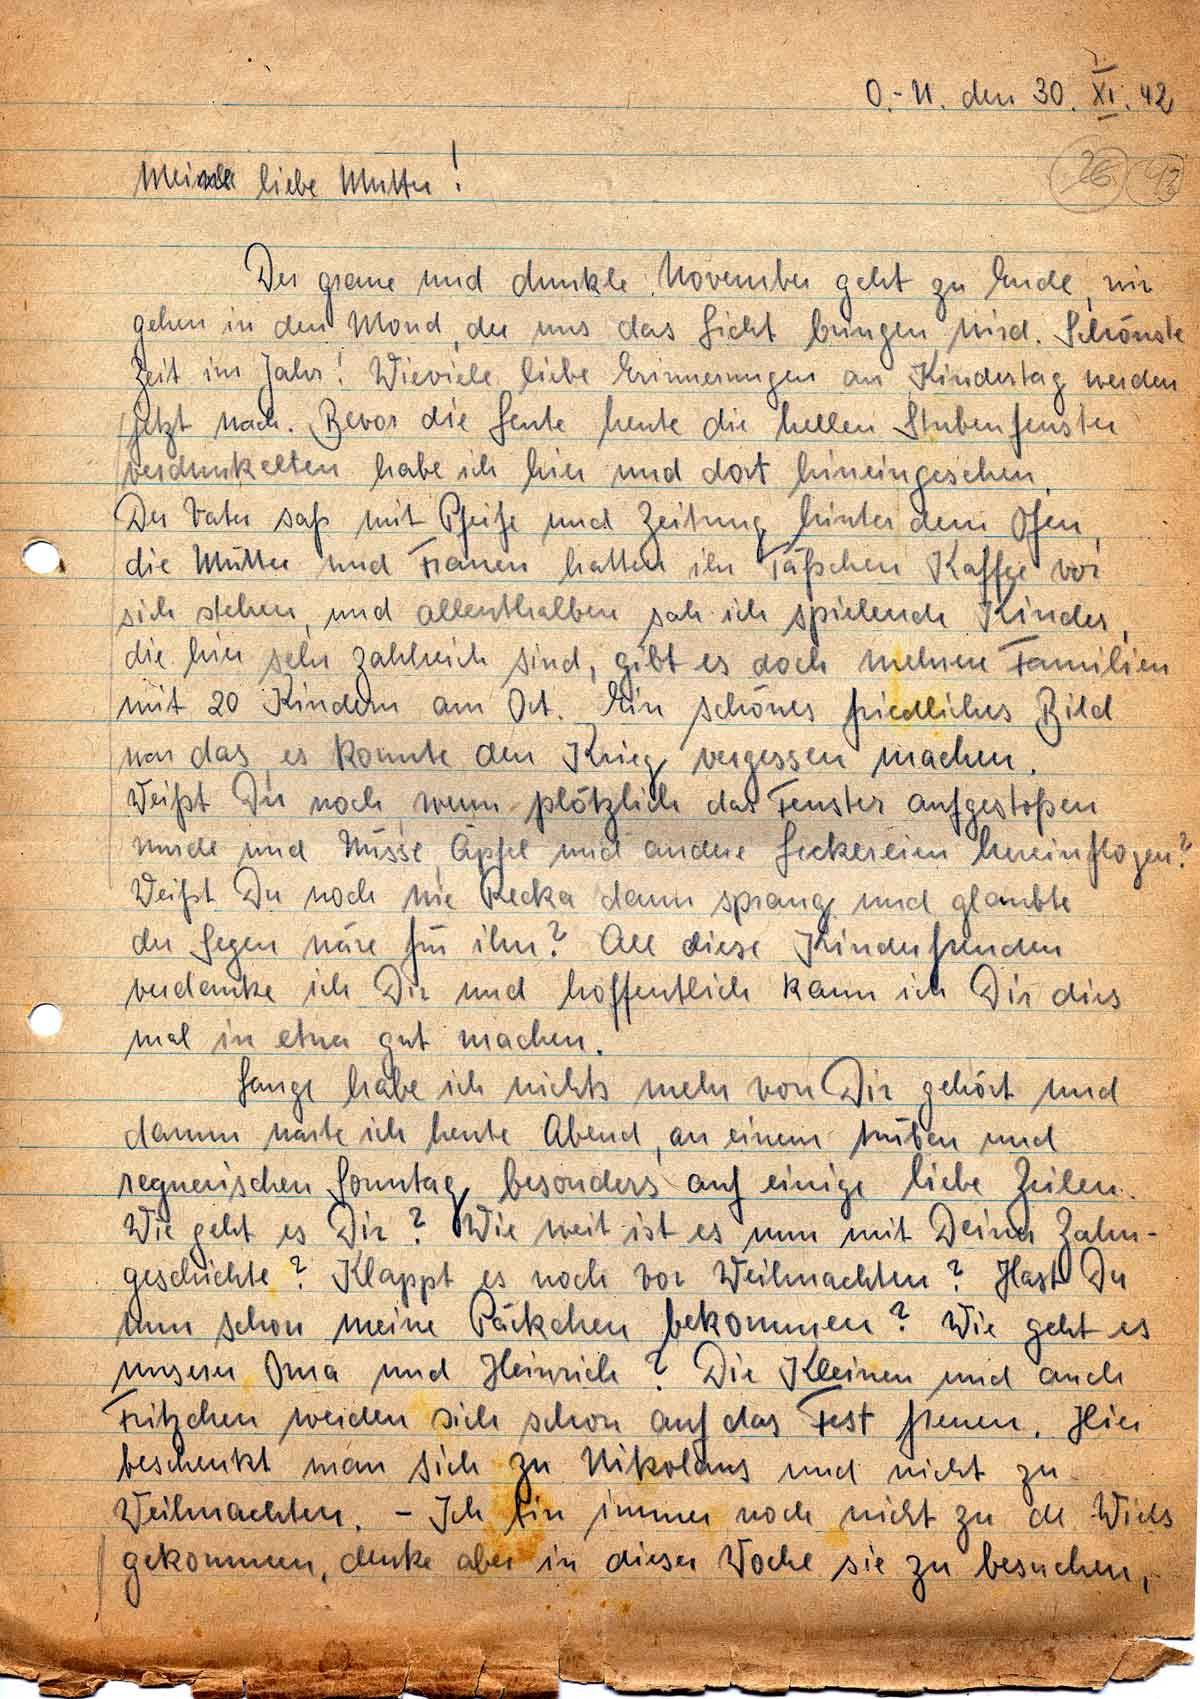 O.-U. den 30. XI. 42
Meine liebe Mutter!
Der graue und dunkle November geht zu Ende, wir
gehen in den Mond, der uns das Licht bringen wird. Schönste
Zeit im Jahr! Wieviele liebe Erinnerungen an Kindertag werden
jetzt wach. Bevor die Leute heute die hellen Stubenfenster
verdunkelten habe ich hier und dort hineingesehen.
Der Vater saß mit Pfeife und Zeitung hinter dem Ofen,
die Mütter und Frauen hatten ihr Täßchen Kaffee vor
sich stehen, und allenthalben sah ich spielende Kinder,
die hier sehr zahlreich sind, gibt es doch mehrere Familien
mit 20 Kindern am Ort. Ein schönes friedliches Bild
war das, es konnte den Krieg vergessen machen.
Weißt Du noch, wenn plötzlich das Fenster aufgestoßen
wurde und Nüsse, Äpfel und andere Leckereien hereinflogen?
Weißt Du noch wie Recka dann sprang und glaubte
der Segen wäre für ihn? All diese Kinderfreuden
verdanke ich Dir und hoffentlich kann ich Dir dies
mal in etwa gut machen.
Lange habe ich nichts mehr von Dir gehört und
darum warte ich heute Abend, an einem trüben und
regnerischen Sonntag besonders auf einige liebe Zeilen.
Wie geht es Dir? Wie weit ist es nun mit Deiner Zahn-
geschichte? Klappt es noch vor Weihnachten? Hast Du
nun schon meine Päckchen bekommen? Wie geht es
unserer Oma und Heinrich? Die Kleinen und auch
Fritzchen werden sich schon auf das Fest freuen. Hier
beschenkt man sich zu Nikolaus und nicht zu
Weihnachten. – Ich bin immer noch nicht zu de Wiels
gekommen, denke aber in dieser Woche sie zu besuchen,